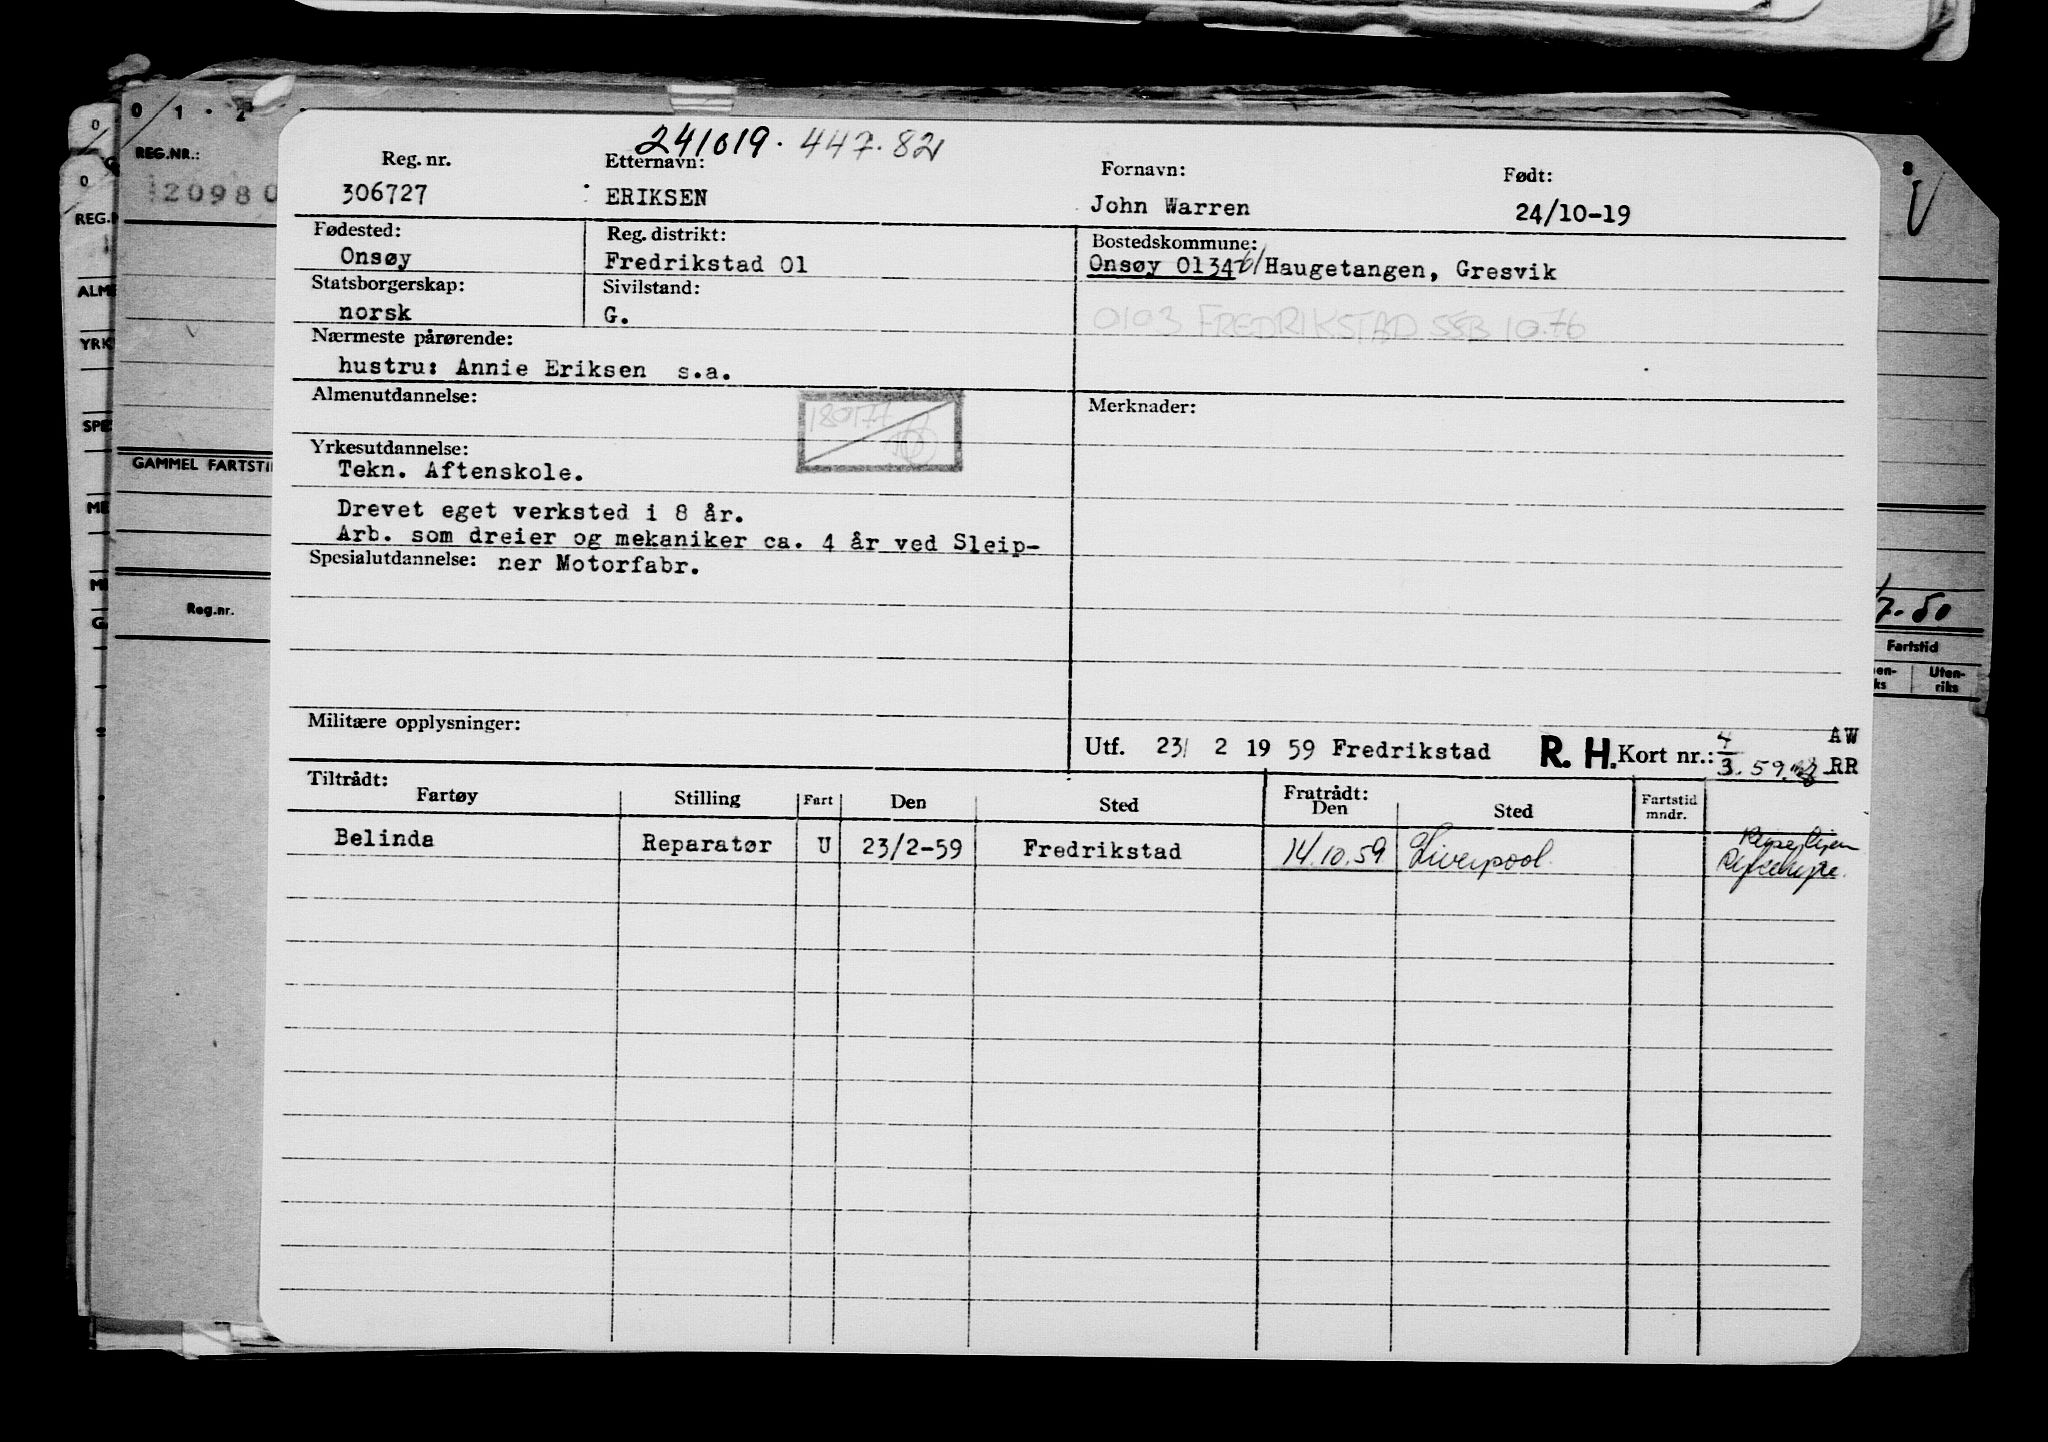 0 1 . 2
0
0
REG.NR.:
20980
REG.
ALME
YRK
SPE
GAMMEL FARTSTI
ME
Reg.nr.
241019. 447.82
Reg. nr. Etternavn: Fornavn: Født:
306727 ERIKSEN John Warren 24/10-19
Fødested: Reg. distrikt: Bostedskommune:
Onsøy Fredrikstad 01 Onsøy 0134 Haugetangen, Gresvik
Statsborgerskap: Sivilstand:
norsk G. 0103 FREDRIKSTAD SSB 10.76
Nærmeste pårørende:
hustru: Annie Eriksen s.a.
Almenutdannelse: 180177 Merknader:
Yrkesutdannelse:
Tekn. Aftenskole.
Drevet eget verksted i 8 år.
Arb. som dreier og mekaniker ca. 4 år ved Sleip-
Spesialutdannelse: ner Motorfabr.
Militære opplysninger:
Utf. 23/ 2 19 59 Fredrikstad R. H. Kort nr.: 4/3.59. AW
RR
Tiltrådt: Fratrådt:
Fartøy Stilling Fart Den Sted Den Sted Fartstid mndr.
Belinda Reparatør U 23/2-59 Fredrikstad 14.10.59 Liverpool
7-50
Fartstid
en-
ks
Uten-
riks